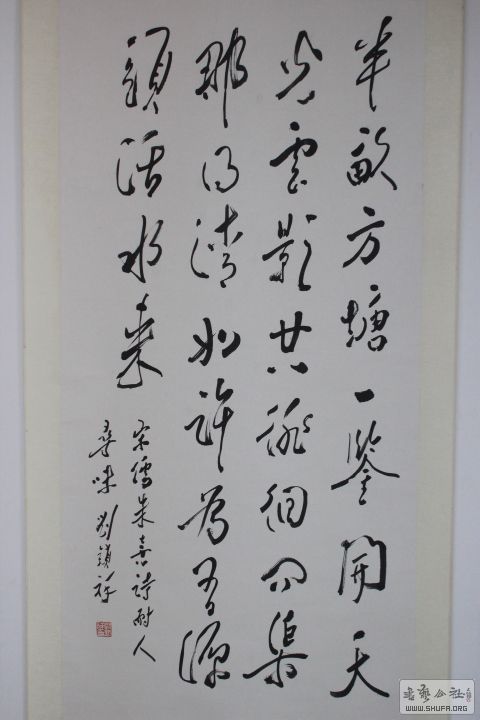 半畝方塘一鑒開天
光雲影共徘徊問渠
那得清如許為有源
頭活水來
宋儒朱熹詩耐人
尋味 劉鎮祥
書藝公社
WWW.SHUFA.ORG